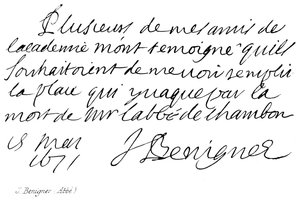 Plusieurs de mes amis de
lacademie mont temoigne quils
souhaitoient de me voir remplir
la place qui vaque par la
mort de Mr labbé de chambon
8 Mars
1671
J Benigne
J. Benigner (Abbé)